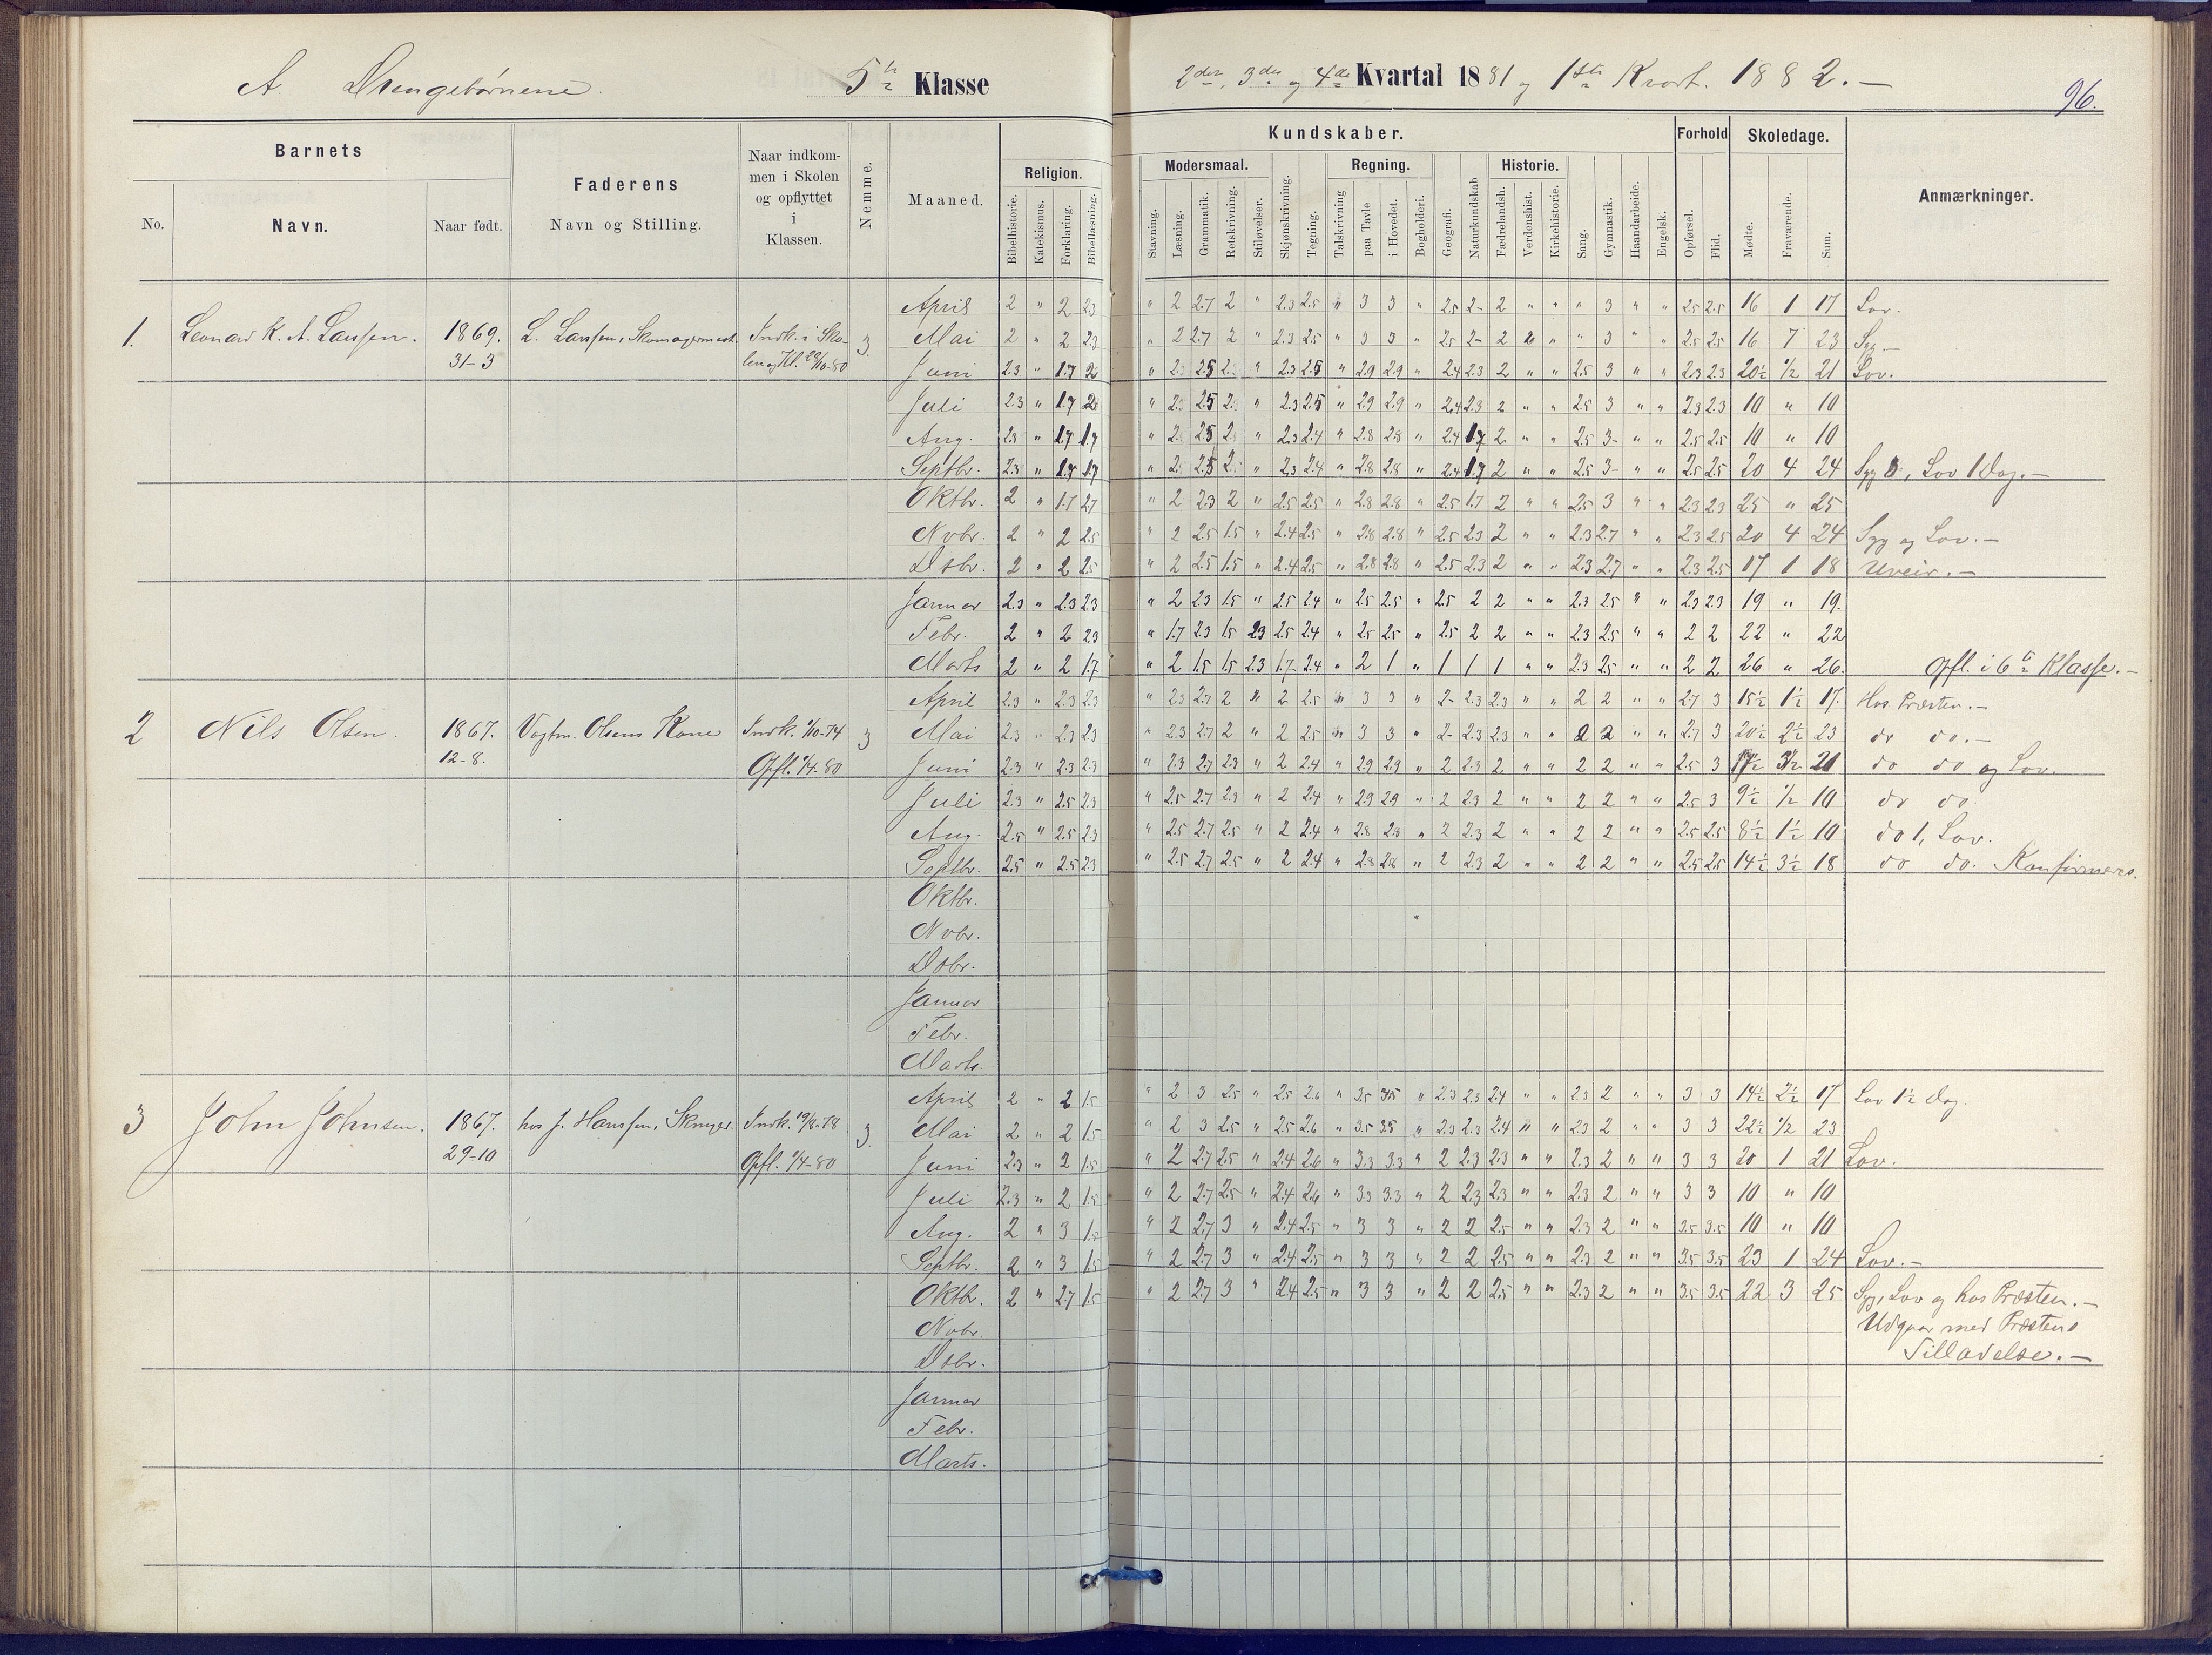 A. Drengebørnene. 5te Klasse 2det, 3die og 4de Kvartal 1881 og 1ste Kvart. 1882. —
96.
Barnets
No. Navn. Naar født.
Faderens
Navn og Stilling.
Naar indkom-
men i Skolen
og opflyttet
i
Klassen.
Nemme.
Maaned.
Kundskaber.
Religion.
Bibelhistorie. Katekismus. Forklaring. Bibellæsning.
Modersmaal.
Stavning. Læsning. Grammatik. Retskrivning. Stiløvelser.
Skjønskrivning. Tegning.
Regning.
Talskrivning paa Tavle i Hovedet. Bogholderi.
Geografi. Naturkundskab
Historie.
Fædrelandsh. Verdenshist. Kirkehistorie.
Sang. Gymnastik. Haandarbeide. Engelsk.
Forhold
Opførsel. Flid.
Skoledage.
Mødte. Fraværende. Sum.
Anmærkninger.
1. Leonard K. A. Larssen. 1869. L. Larssen, Skomagermest. Indk. i Sko- 3.
31-3 len og Kl.
April 2 " 2 2.3 " 2 2.7 2 " 2.3 2.5 " 3 3 " 2.5 2- 2 " " " 3 " " 2.5 2.5 16 1 17 Lov.
Mai 2 " 2 2.3 " 2 2.7 2 " 2.3 2.5 " 3 3 " 2.5 2- 2 " " 3 " " 2.5 2.5 16 7 23 Syg. —
Juni 2.3 " 1.7 2 " 2.5 " 2.3 2.5 " 2.9 2.9 " 2.4 2.3 2 " " 2.5 3 " " 2.3 2.3 20½ ½ 21 Lov.
Juli 2.3 " 1.7 2 " 2.5 " 2.3 2.5 " 2.9 2.9 " 2.4 2.3 2 " " 2.5 3 " " 2.3 2.3 10 " 10
Aug. 2.3 " 1.7 1.7 " 2.5 " 2.3 2.4 " 2.8 2.8 " 2.4 1.7 2 " " 2.5 3- " " 2.5 2.5 10 " 10
Septbr. 2.3 " 1.7 1.7 " 2.5 " 2.3 2.4 " 2.8 2.8 " 2.4 1.7 2 " " 2.5 3- " " 2.5 2.5 20 4 24 Syg 3, Lov 1 Dag. —
Oktbr. 2 " 1.7 2.7 " 2 2.3 2 " 2.5 2.5 " 2.8 2.8 " 2.5 1.7 2 " " 2.5 3 " " 2.3 2.3 25 " 25
Novbr. 2 " 2 2.5 " 2 2.5 1.5 " 2.4 2.5 " 2.8 2.8 " 2.5 2.3 2 " " 2.3 2.7 " " 2.3 2.5 20 4 24 Syg og Lov. —
Dsbr. 2 " 2 2.5 " 2 2.5 1.5 " 2.4 2.5 " 2.8 2.8 " 2.5 2.3 2 " " 2.3 2.7 " " 2.3 2.5 17 1 18 Uveir. —
Januar 2.3 " 2.3 2.3 " 2 2.3 1.5 " 2.5 2.4 " 2.5 2.5 " 2.5 2 2 " " 2.3 2.5 " " 2.3 2.3 19 " 19.
Febr. 2 " 2 2.3 " 1.7 2.3 1.5 2.3 2.5 2.4 " 2.5 2.5 " 2.5 2 2 " " 2.3 2.5 " " 2 2 22 " 22
Marts 2 " 2 1.7 " 2 1.5 1.5 2.3 1.7 2.4 " 2 1 " 1 1 1 " " 2.3 2.5 " " 2 2 26 " 26. Opfl. i 6te Klasse. —
2 Nils Olsen. 1867. Vogtm. Olsens Kone Indk. 1/10-74 3
12-8. Opfl. 1/4-80
April 2.3 " 2.3 2.3 " 2.3 2.7 2 " 2 2.5 " 3 3 " 2- 2.3 2.3 " " 2 2 " " 2.7 3 15½ 1½ 17. Hos Præsten. —
Mai 2.3 " 2.3 2.3 " 2.3 2.7 2 " 2 2.5 " 3 3 " 2- 2.3 2.3 " " 2 2 " " 2.7 3 20½ 2½ 23 do do. —
Juni 2.3 " 2.3 2.3 " 2.3 2.7 2.3 " 2 2.4 " 2.9 2.9 " 2 2.3 2 " " 2 2 " " 2.5 3 17½ 3½ 21 do do og Lov.
Juli 2.3 " 2.5 2.3 " 2.5 2.7 2.3 " 2 2.4 " 2.9 2.9 " 2 2.3 2 " " 2 2 " " 2.5 3 9½ ½ 10 do do.
Aug. 2.5 " 2.5 2.3 " 2.5 2.7 2.5 " 2 2.4 " 2.8 2.8 " 2 2.3 2 " " 2 2 " " 2.5 2.5 8½ 1½ 10 do 1, Lov.
Septbr. 2.5 " 2.5 2.3 " 2.5 2.7 2.5 " 2 2.4 " 2.8 2.8 " 2 2.3 2 " " 2 2 " " 2.5 2.5 14½ 3½ 18 do do. Konfirmeres.
Oktbr.
Novbr.
Dsbr.
Januar
Febr.
Marts.
3 John Johnsen. 1867. hos J. Hanssen, Indk. 3.
29-10 Opfl. 1/4-80
April 2 " 2 1.5 " 2 3 2.5 " 2.5 2.6 " 3.5 3.5 " 2.3 2.3 2.4 " " 2.3 2 " " 3 3 14½ 2½ 17 Lov 1½ Dag.
Mai 2 " 2 1.5 " 2 3 2.5 " 2.5 2.6 " 3.5 3.5 " 2.3 2.3 2.4 " " 2.3 2 " " 3 3 22½ ½ 23
Juni 2.3 " 2 1.5 " 2 2.7 2.5 " 2.4 2.6 " 3.3 3.3 " 2 2.3 2.3 " " 2.3 2 " " 3 3 20 1 21 Lov.
Juli 2.3 " 2 1.5 " 2 2.7 2.5 " 2.4 2.6 " 3.3 3.3 " 2 2.3 2.3 " " 2.3 2 " " 3 3 10 " 10
Aug. 2 " 3 1.5 " 2 2.7 3 " 2.4 2.5 " 3 3 " 2 2 2.5 " " 2.3 2 " " 3.5 3.5 10 " 10
Septbr. 2 " 3 1.5 " 2 2.7 3 " 2.4 2.5 " 3 3 " 2 2 2.5 " " 2.3 2 " " 3.5 3.5 23 1 24 Lov. —
Oktbr. 2 " 2.7 1.5 " 2 2.7 3 " 2.4 2.5 " 3 3 " 2 2 2.5 " " 2.3 2 " " 3.5 3.5 22 3 25 Syg, Lov og hos Præsten. —
Novbr. Udgaar med Præstens
Dsbr. Tilladelse. —
Januar
Febr.
Marts.